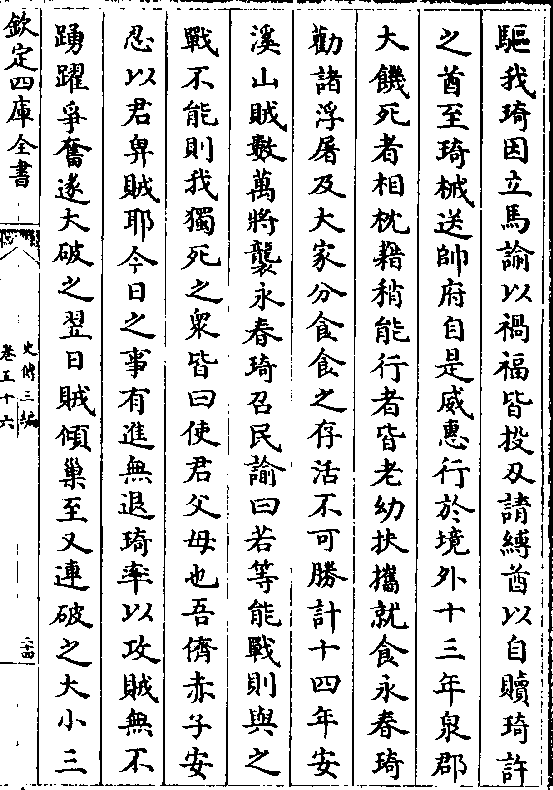 驅我琦因立馬諭以禍福皆投刄請縛酋以自贖琦許
之酋至琦械送帥府自是威惠行於境外十三年泉郡
大饑死者相枕籍稍能行者皆老幼扶攜就食永春琦
勸諸浮屠及大家分食食之存活不可勝計十四年安
溪山賊數萬將襲永春琦召民諭曰若等能戰則與之
戰不能則我獨死之衆皆曰使君父母也吾儕赤子安
忍以君畀賊耶今日之事有進無退琦率以攻賊無不
踴躍爭奮遂大破之翌日賊傾巢至又連破之大小三
欽定四庫全書
史傳三編
卷五十六
二十四